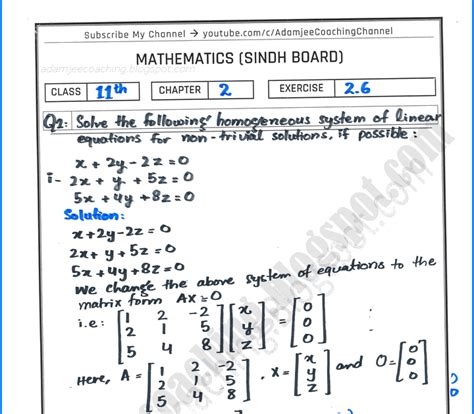 Subscribe My Channel → youtube.com/c/AdamjeeCoachingChannel
MATHEMATICS (SINDH BOARD)
adamjeecoaching.blogspot.com
CLASS 11th CHAPTER 2 EXERCISE 2.6
Q2: Solve the following homogeneous system of linear
equations for non-trivial solutions, if possible:
x + 2y - 2z = 0
i- 2x + y + 5z = 0
5x + 4y + 8z = 0
Solution:
x + 2y - 2z = 0
2x + y + 5z = 0
5x + 4y + 8z = 0
We change the above system of equations to the
matrix form AX = 0
i.e: [1 2 -2; 2 1 5; 5 4 8] [x; y; z] = [0; 0; 0]
Here, A = [1 2 -2; 2 1 5; 5 4 8], X = [x; y; z] and O = [0; 0; 0]